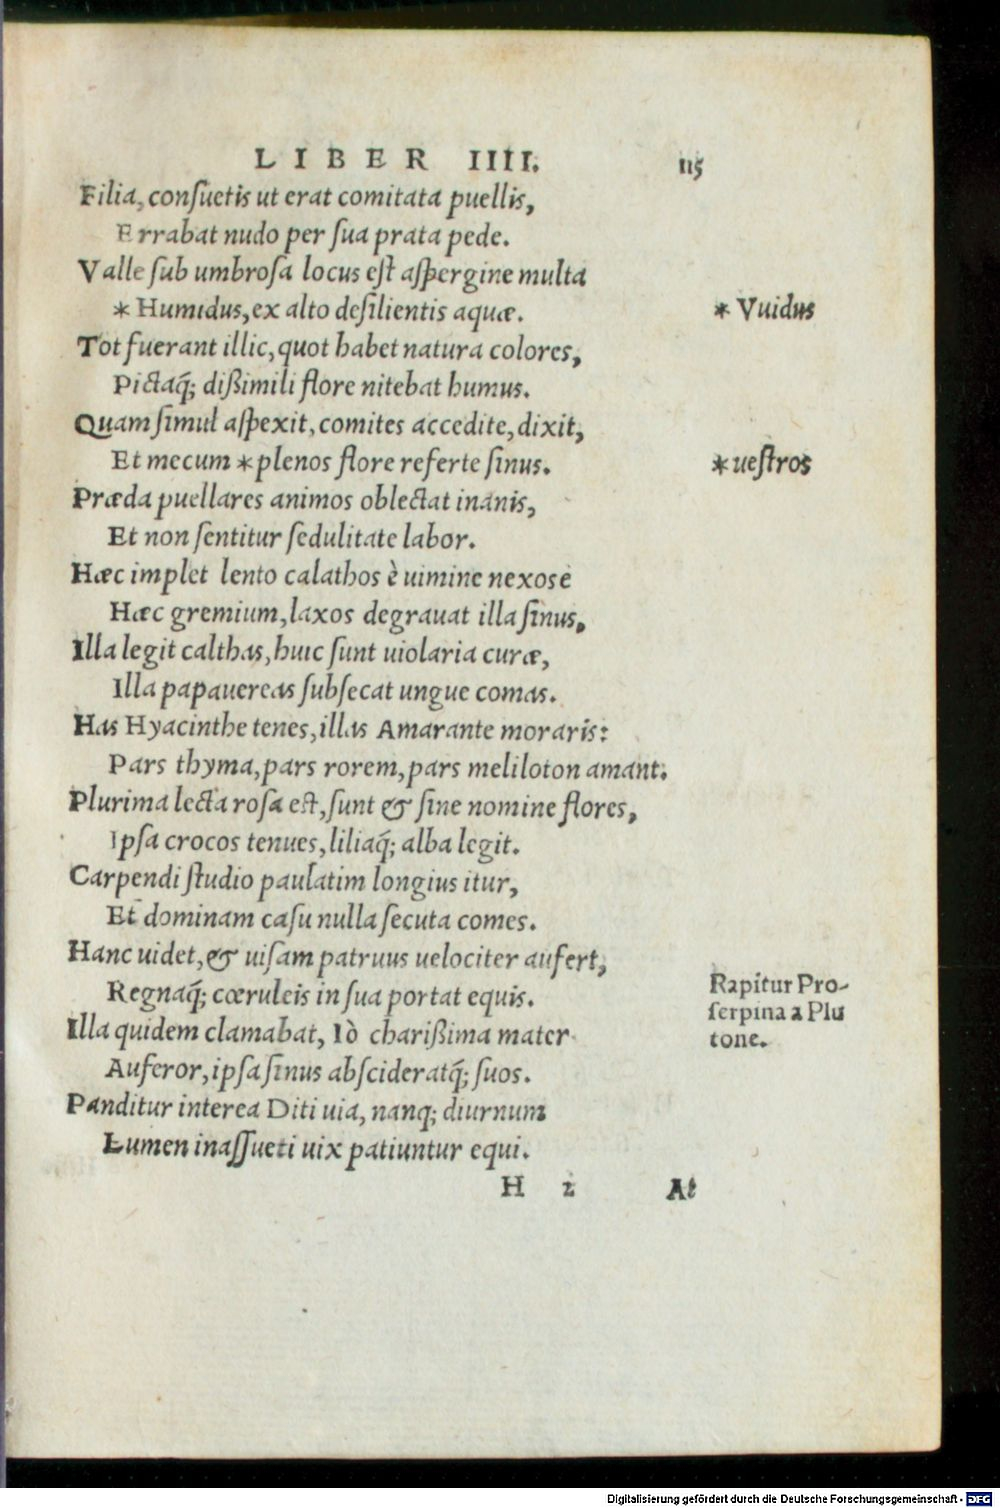 LIBER IIII. 115
Filia, conſuetis ut erat comitata puellis,
Errabat nudo per ſua prata pede.
Valle ſub umbroſa locus eſt aſpergine multa
* Humidus, ex alto deſilientis aquæ.
* Vuidus
Tot fuerant illic, quot habet natura colores,
Pictaq́; dißimili flore nitebat humus.
Quam ſimul aſpexit, comites accedite, dixit,
Et mecum * plenos flore referte ſinus.
* ueſtros
Præda puellares animos oblectat inanis,
Et non ſentitur ſedulitate labor.
Hæc implet lento calathos è uimine nexos
Hæc gremium, laxos degrauat illa ſinus,
Illa legit calthas, huic ſunt uiolaria curæ,
Illa papauereas ſubſecat ungue comas.
Has Hyacinthe tenes, illas Amarante moraris:
Pars thyma, pars rorem, pars meliloton amant.
Plurima lecta roſa eſt, ſunt & ſine nomine flores,
Ipſa crocos tenues, liliaq́; alba legit.
Carpendi ſtudio paulatim longius itur,
Et dominam caſu nulla ſecuta comes.
Hanc uidet, & uiſam patruus uelociter aufert,
Regnaq́; cœruleis in ſua portat equis.
Rapitur Pro-
ſerpina a Plu
tone.
Illa quidem clamabat, Iò charißima mater
Auferor, ipſa ſinus abſcideratq́; ſuos.
Panditur interea Diti uia, nanq; diurnum
Lumen inaſſueti uix patiuntur equi.
H 2 At
Digitalisierung gefördert durch die Deutsche Forschungsgemeinschaft - DFG